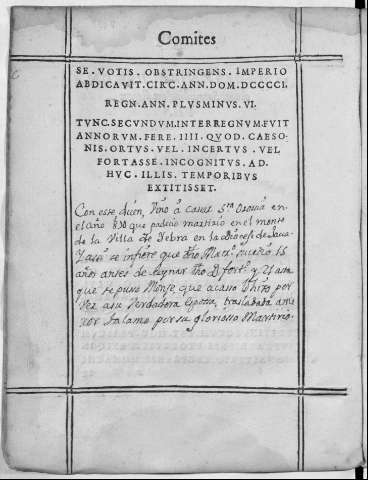 Comites
SE. VOTIS. OBSTRINGENS. IMPERIO
ABDICAVIT. CIRC. ANN. DOM. DCCCCI.
REGN. ANN. PLVSMINVS. VI.
TVNC. SECVNDVM. INTERREGNVM. FVIT
ANNORVM. FERE. IIII. QVOD. CAESO-
NIS. ORTVS. VEL. INCERTVS. VEL
FORTASSE. INCOGNITVS. AD.
HVC. ILLIS. TEMPORIBVS
EXTITISSET.
Con este dicen, Vino á casar Sta Orosia en
el año que padecio martirio en el monte
de la Villa de Yebra en la Diocesi de Jaca
Y assi se infiere que dho murio 15
años antes de Reynar dho D. fort. y 21
que se puso Monje que acaso lo hizo por
Vez a su Verdadera Esposa, trasladada a me
xor talamo por su glorioso Martirio.